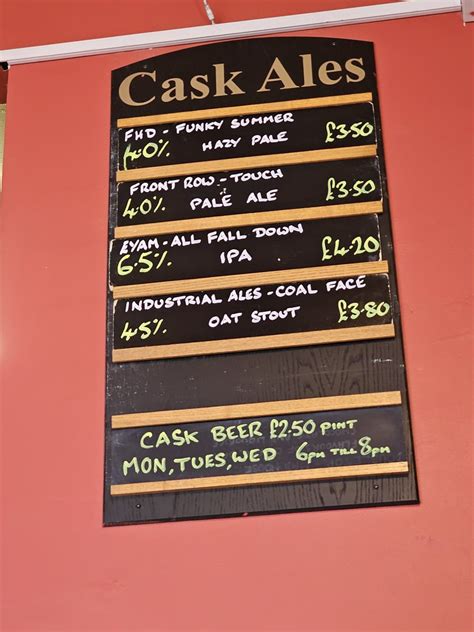 Cask Ales
FHD - FUNKY SUMMER
4.0% HAZY PALE £3.50
FRONT ROW - TOUCH
4.0% PALE ALE £3.50
EYAM - ALL FALL DOWN
6.5% IPA £4.20
INDUSTRIAL ALES - COAL FACE
4.5% OAT STOUT £3.80
CASK BEER £2.50 PINT
MON, TUES, WED 6PM TILL 8PM